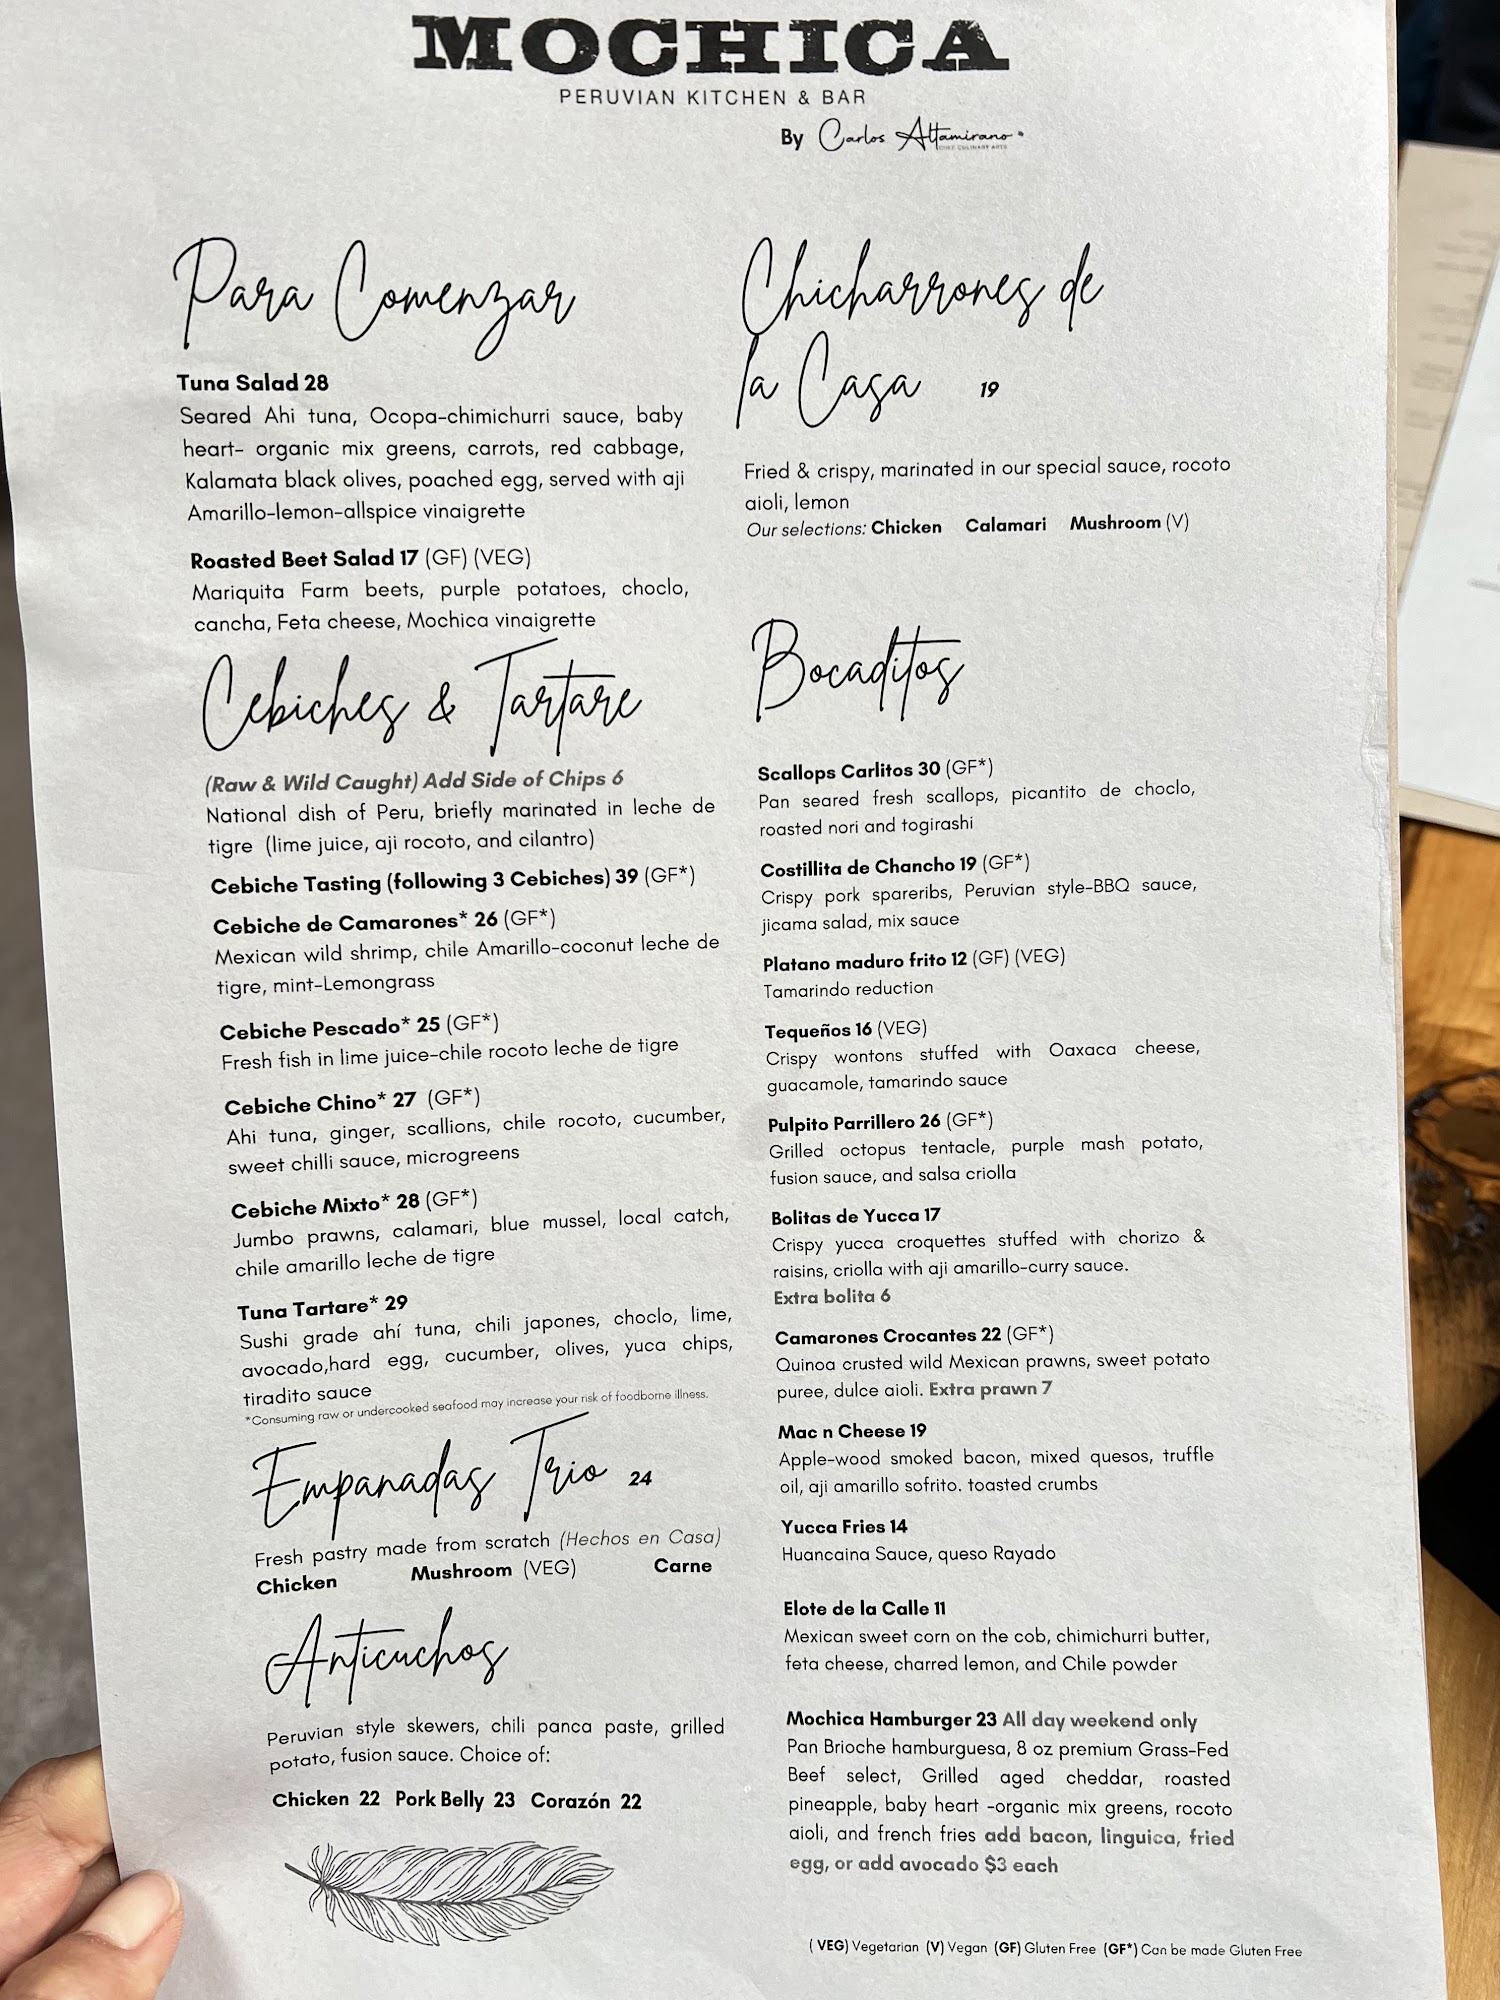 MOCHICA
PERUVIAN KITCHEN & BAR
By Carlos Altamirano
Para Comenzar
Tuna Salad 28
Seared Ahi tuna, Ocopa-chimichurri sauce, baby
heart- organic mix greens, carrots, red cabbage,
Kalamata black olives, poached egg, served with aji
Amarillo-lemon-allspice vinaigrette
Roasted Beet Salad 17 (GF) (VEG)
Mariquita Farm beets, purple potatoes, choclo,
cancha, Feta cheese, Mochica vinaigrette
Cebiches & Tartare
(Raw & Wild Caught) Add Side of Chips 6
National dish of Peru, briefly marinated in leche de
tigre (lime juice, aji rocoto, and cilantro)
Cebiche Tasting (following 3 Cebiches) 39 (GF*)
Cebiche de Camarones* 26 (GF*)
Mexican wild shrimp, chile Amarillo-coconut leche de
tigre, mint-Lemongrass
Cebiche Pescado* 25 (GF*)
Fresh fish in lime juice-chile rocoto leche de tigre
Cebiche Chino* 27 (GF*)
Ahi tuna, ginger, scallions, chile rocoto, cucumber,
sweet chilli sauce, microgreens
Cebiche Mixto* 28 (GF*)
Jumbo prawns, calamari, blue mussel, local catch,
chile amarillo leche de tigre
Tuna Tartare* 29
Sushi grade ahí tuna, chili japones, choclo, lime,
avocado,hard egg, cucumber, olives, yuca chips,
tiradito sauce
*Consuming raw or undercooked seafood may increase your risk of foodborne illness.
Empanadas Trio 24
Fresh pastry made from scratch (Hechos en Casa)
Chicken Mushroom (VEG) Carne
Anticuchos
Peruvian style skewers, chili panca paste, grilled
potato, fusion sauce. Choice of:
Chicken 22 Pork Belly 23 Corazón 22
Chicharrones de
la Casa 19
Fried & crispy, marinated in our special sauce, rocoto
aioli, lemon
Our selections: Chicken Calamari Mushroom (V)
Bocaditos
Scallops Carlitos 30 (GF*)
Pan seared fresh scallops, picantito de choclo,
roasted nori and togirashi
Costillita de Chancho 19 (GF*)
Crispy pork spareribs, Peruvian style-BBQ sauce,
jicama salad, mix sauce
Platano maduro frito 12 (GF) (VEG)
Tamarindo reduction
Tequeños 16 (VEG)
Crispy wontons stuffed with Oaxaca cheese,
guacamole, tamarindo sauce
Pulpito Parrillero 26 (GF*)
Grilled octopus tentacle, purple mash potato,
fusion sauce, and salsa criolla
Bolitas de Yucca 17
Crispy yucca croquettes stuffed with chorizo &
raisins, criolla with aji amarillo-curry sauce.
Extra bolita 6
Camarones Crocantes 22 (GF*)
Quinoa crusted wild Mexican prawns, sweet potato
puree, dulce aioli. Extra prawn 7
Mac n Cheese 19
Apple-wood smoked bacon, mixed quesos, truffle
oil, aji amarillo sofrito. toasted crumbs
Yucca Fries 14
Huancaina Sauce, queso Rayado
Elote de la Calle 11
Mexican sweet corn on the cob, chimichurri butter,
feta cheese, charred lemon, and Chile powder
Mochica Hamburger 23 All day weekend only
Pan Brioche hamburguesa, 8 oz premium Grass-Fed
Beef select, Grilled aged cheddar, roasted
pineapple, baby heart -organic mix greens, rocoto
aioli, and french fries add bacon, linguica, fried
egg, or add avocado $3 each
( VEG) Vegetarian (V) Vegan (GF) Gluten Free (GF*) Can be made Gluten Free